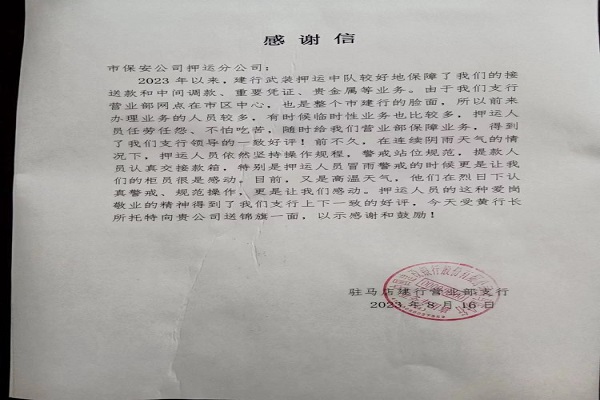 感谢信
市保安公司押运分公司:
2023年以来,建行武装押运中队较好地保障了我们的接
送款和中间调款、重要凭证、贵金属等业务。由于我们支行
营业部网点在市区中心,也是整个市建行的脸面,所以前来
办理业务的人员较多,有时候临时性业务也比较多,押运人
员任劳任怨、不怕吃苦,随时给我们营业部保障业务,得到
了我们支行领导的一致好评!前不久,在连续阴雨天气的情
况下,押运人员依然坚持操作规程,警戒站位规范,提款人
员认真交接款箱,特别是押运人员冒雨警戒的时候更是让我
们的柜员很是感动。目前,又是高温天气,他们在烈日下认
真警戒、规范操作,更是让我们感动。押运人员的这种爱岗
敬业的精神得到了我们支行上下一致的好评,今天受黄行长
所托特向贵公司送锦旗一面,以示感谢和鼓励!
驻马店建行营业部支行
2023年8月16日